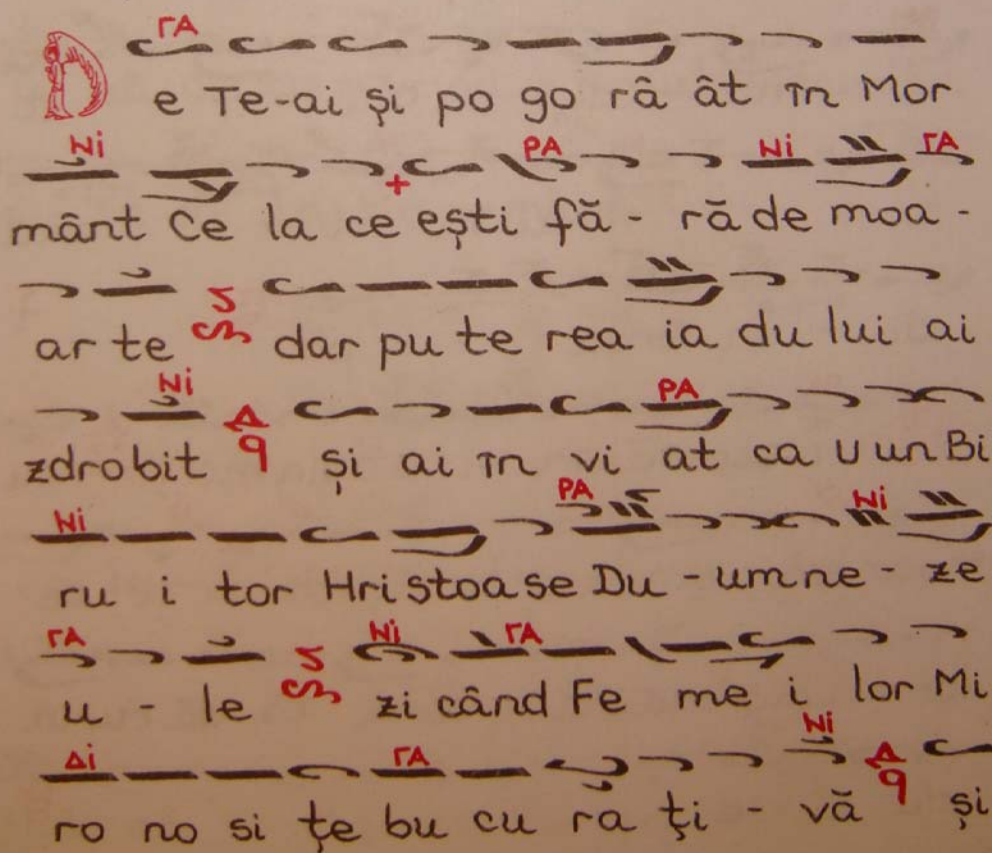 ΓΑ
De Te-ai și po go râ ât în Mor
Ni ΠΑ Ni ΓΑ
mânt Ce la ce ești fă - ră de moa -
ar te dar pu te rea ia du lui ai
Ni ΠΑ
zdrobit și ai în vi at ca U un Bi
Ni ΠΑ Ni
ru i tor Hri stoa se Du - um ne - ze
ΓΑ Ni ΓΑ
u - le zi când Fe me i lor Mi
Δi ΓΑ Ni
ro no si țe bu cu ra ți - vă și